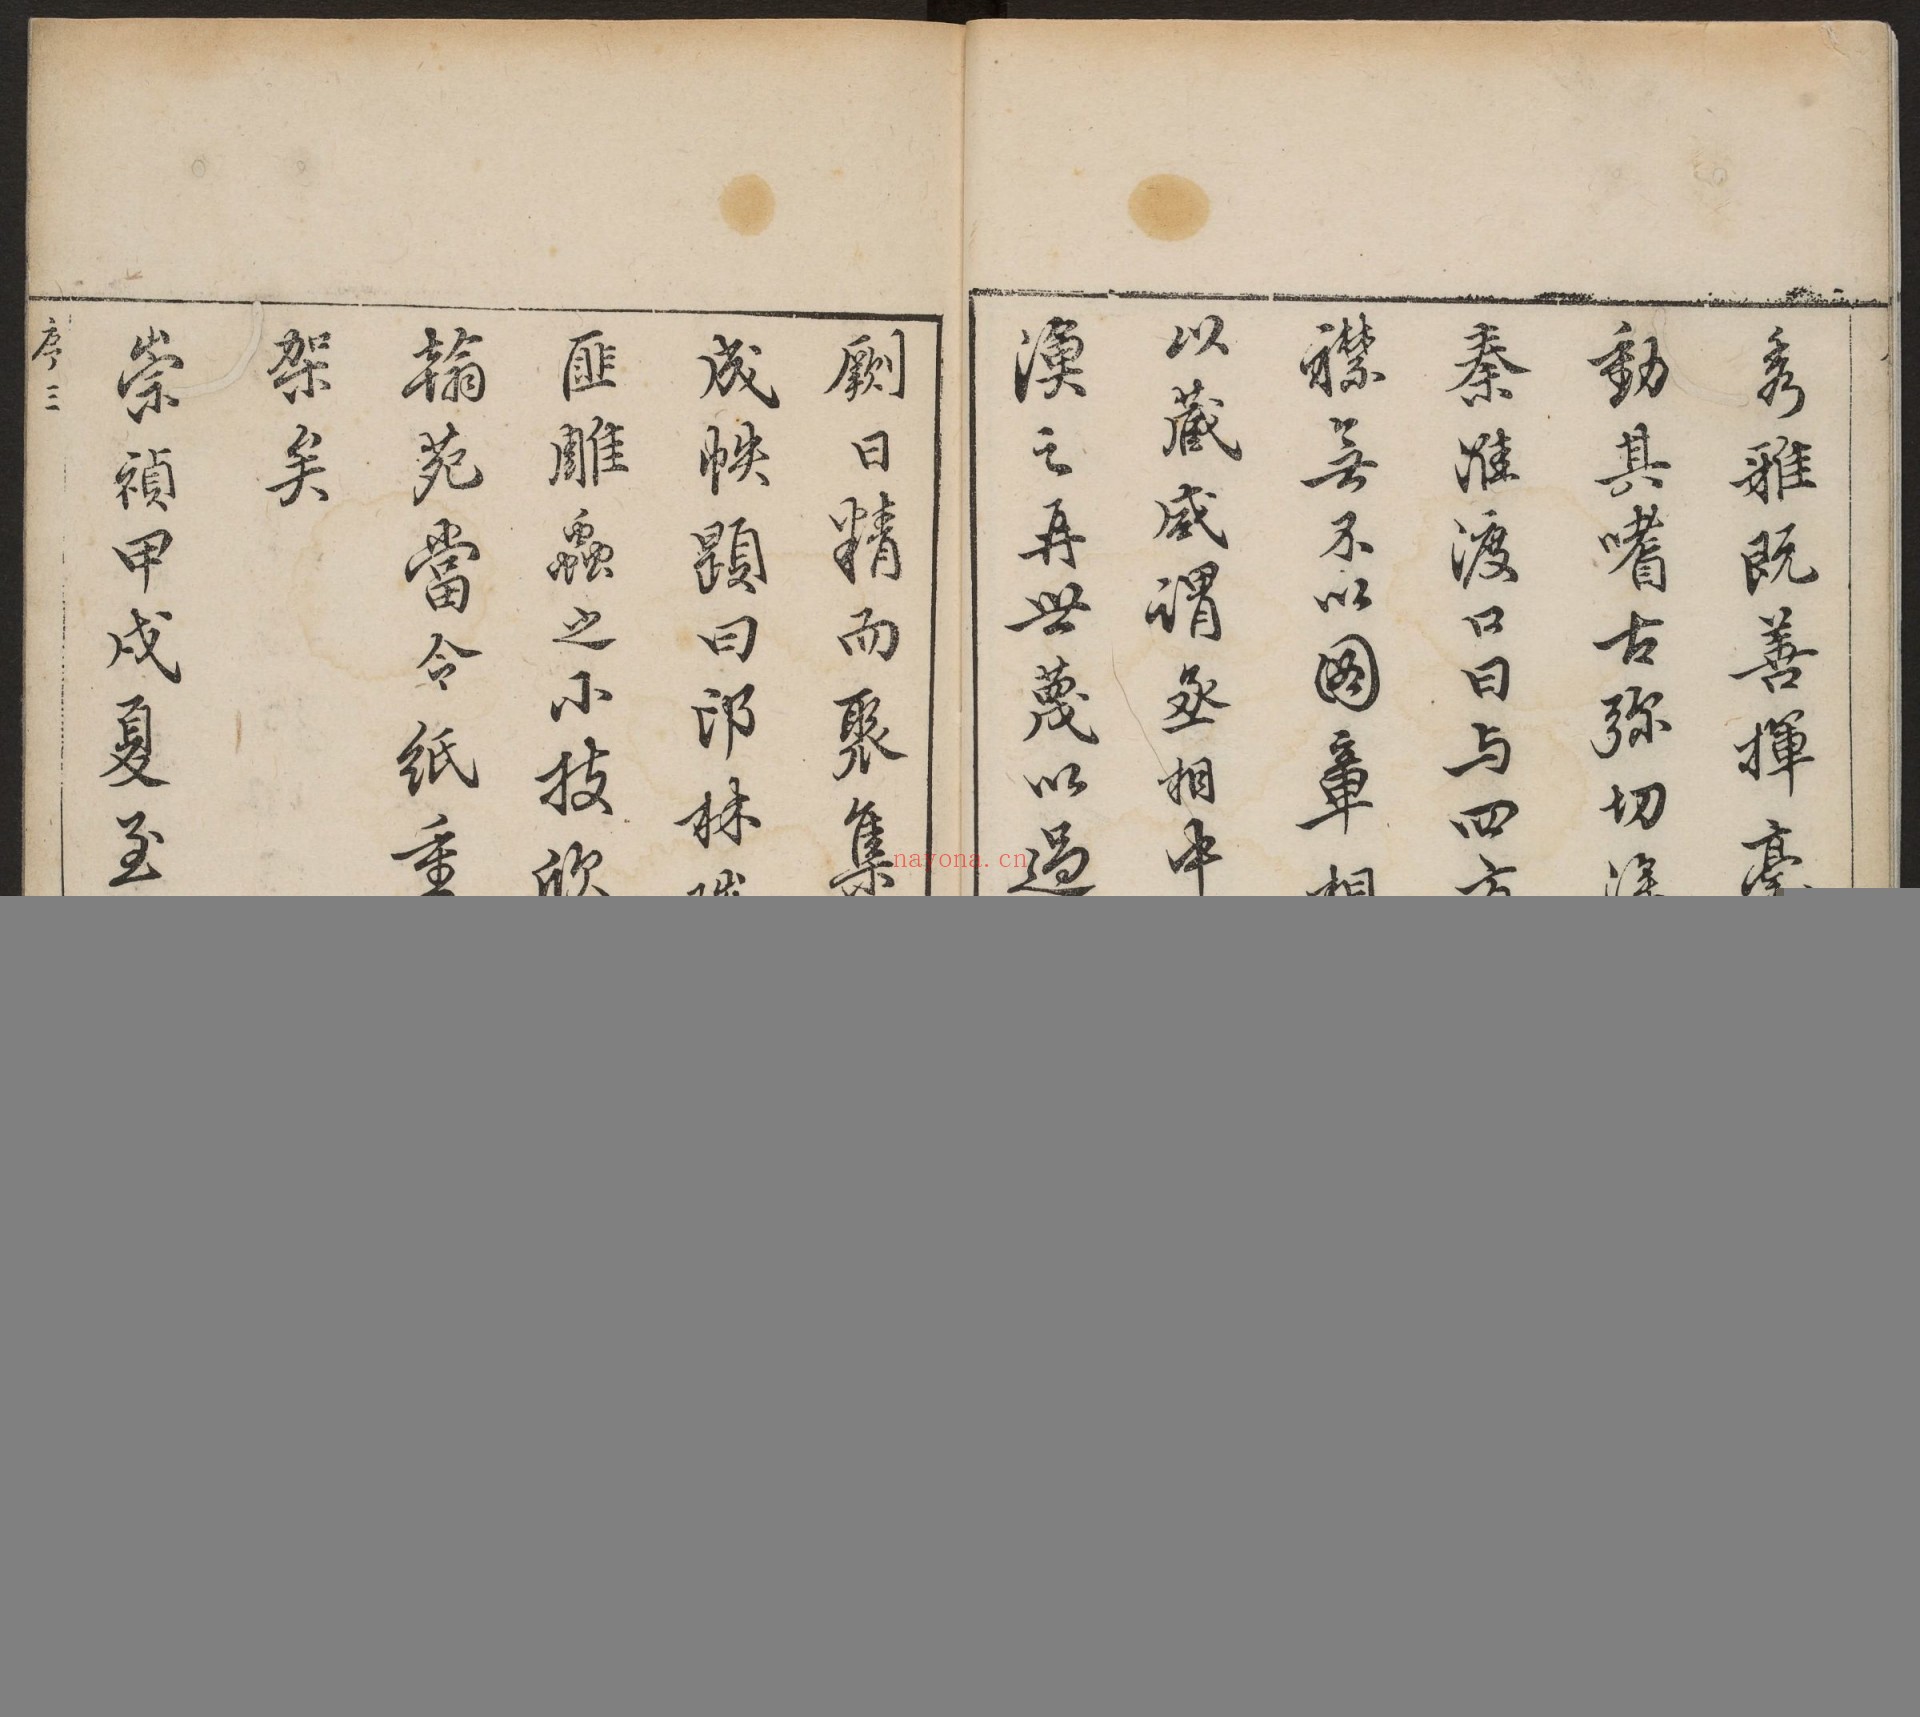 秀雅既善揮毫
動其嗜古弥切
秦淮渡口日与四方
襟無不以圖章相
以藏咸謂丞相中
漢之再世蔑以過
劂日精而聚集
成帙題曰印林
匪雕蟲之小技欣
翰苑當令紙重
架矣
崇禎甲戌夏至
序 三
nayona.cn